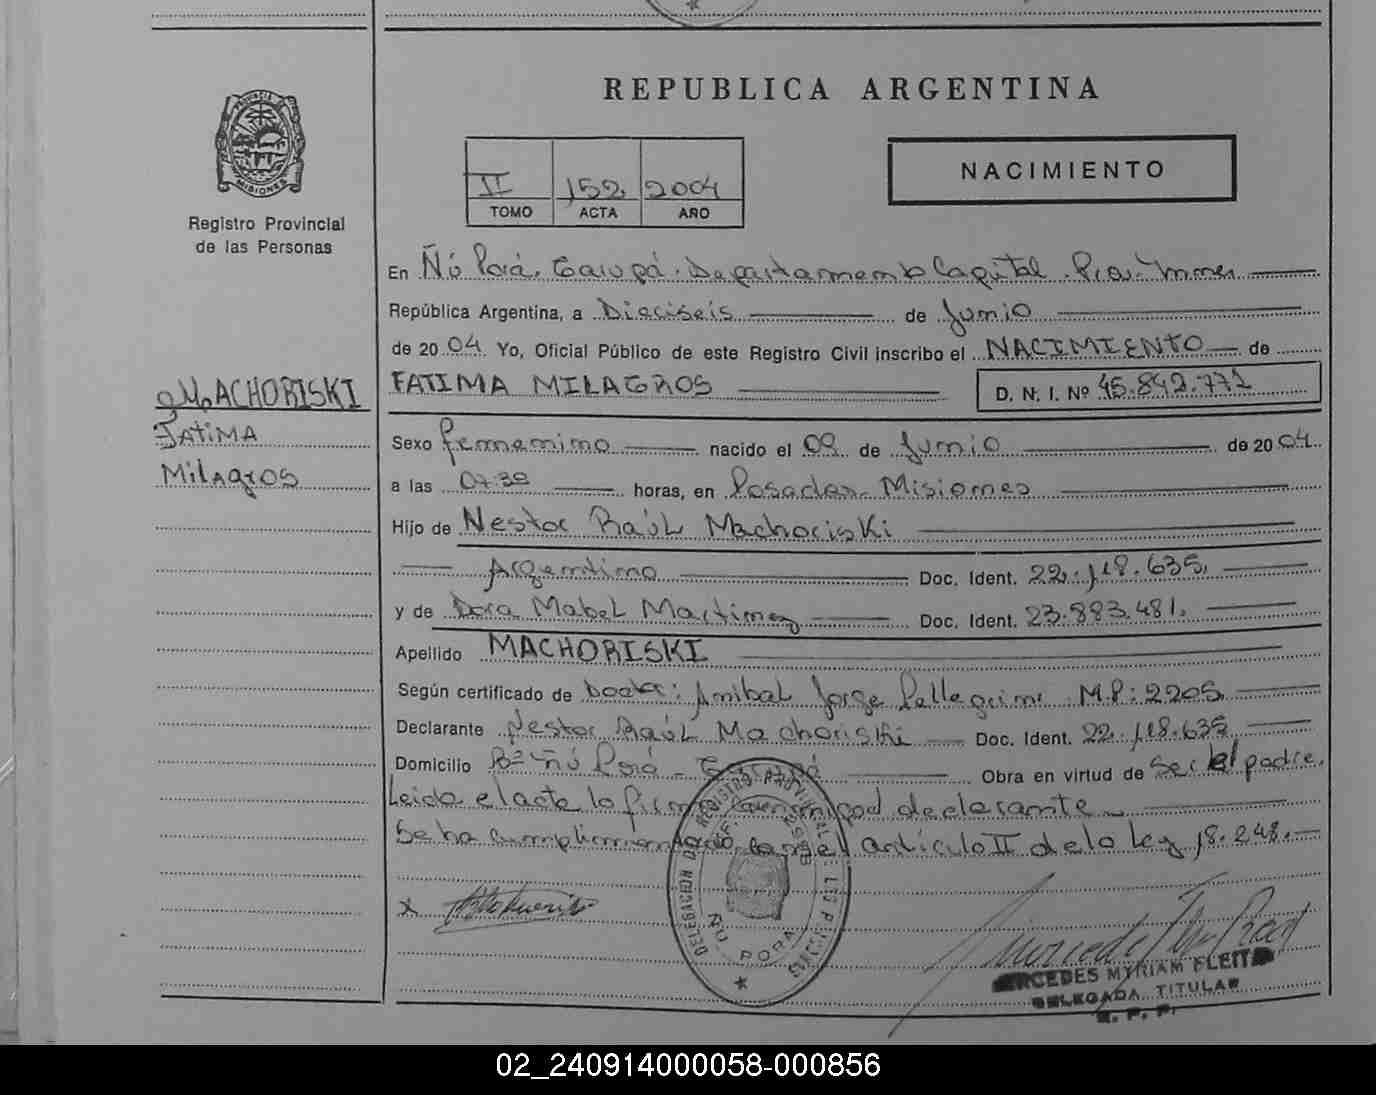 REPUBLICA ARGENTINA
PROVINCIA DE
MISIONES
Registro Provincial
de las Personas
II 152 2004
TOMO ACTA AÑO
NACIMIENTO
En Ñú Porá. Garupá. Departamento Capital. Prov. Mnes
República Argentina, a Dieciseis de Junio
de 2004 Yo, Oficial Público de este Registro Civil inscribo el NACIMIENTO de
FATIMA MILAGROS D. N. I. Nº 45.842.771
MACHORISKI
FATIMA
MilAgros
Sexo femenino nacido el 09 de Junio de 2004
a las 07:30 horas, en Posadas Misiones
Hijo de Nestor Raúl Machoriski
Argentino Doc. Ident. 22.118.635.
y de Dora Mabel Martinez Doc. Ident. 23.883.481.
Apellido MACHORISKI
Según certificado de Doctor: Anibal Jorge Pellegrini M.P: 2205
Declarante Nestor Raúl Machoriski Doc. Ident. 22.118.635
Domicilio Bº Ñú Porá - Garupá Obra en virtud de ser el padre.
Leida el acta la firma conmigo el declarante
Se ha cumplimentado con el articulo II de la Ley 18.248.
DELEGACION DEL REGISTRO PROVINCIAL DE LAS PERSONAS
ÑU PORA
MERCEDES MYRIAM FLEITAS
DELEGADA TITULAR
R. P. P.
02_240914000058-000856